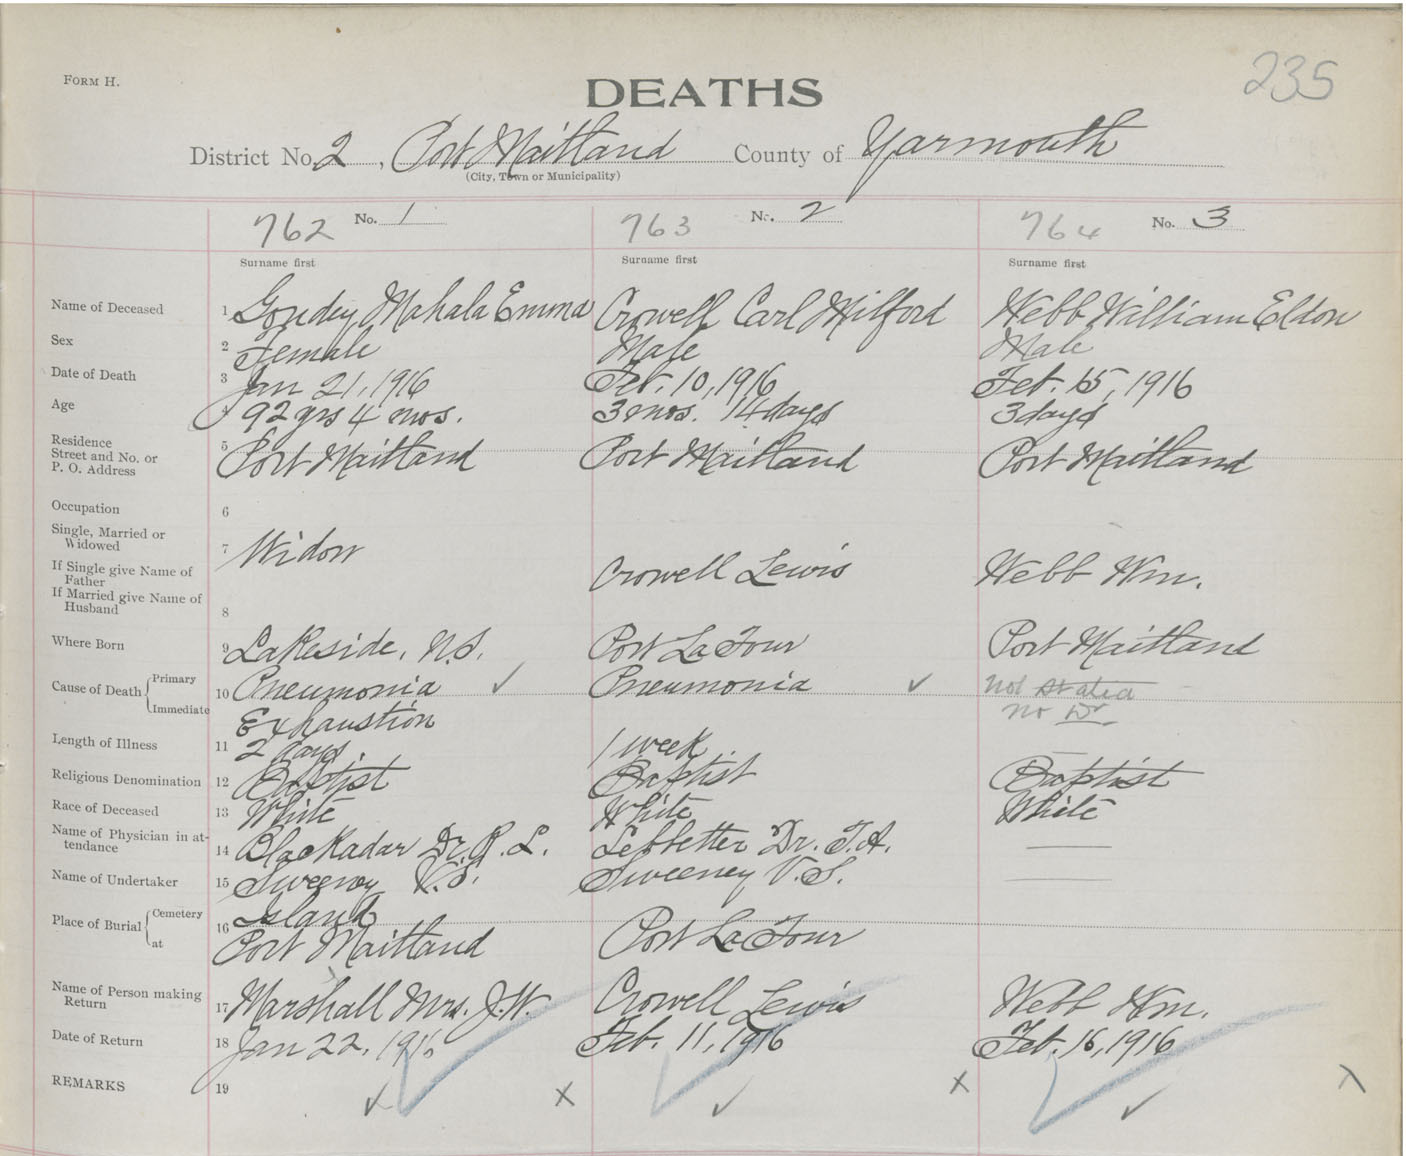 235
FORM H.
DEATHS
District No. 2, Port Maitland County of Yarmouth
(City, Town or Municipality)
762 No. 1 763 No. 2 764 No. 3
Surname first Surname first Surname first
Name of Deceased 1 Goudey Mahala Emma Crowell Carl Milford Webb William Eldon
Sex 2 Female Male Male
Date of Death 3 Jan 21, 1916 Feb. 10, 1916 Feb. 15, 1916
Age 4 92 yrs 4 mos. 3 mos. 14 days 3 days
Residence
Street and No. or
P. O. Address 5 Port Maitland Port Maitland Port Maitland
Occupation 6
Single, Married or
Widowed 7 Widow
If Single give Name of
Father Crowell Lewis Webb Wm.
If Married give Name of
Husband 8
Where Born 9 Lakeside, N.S. Port LaTour Port Maitland
Cause of Death Primary 10 Pneumonia ✓ Pneumonia ✓ Not Stated
Immediate Exhaustion No Dr
Length of Illness 11 2 days 1 week —
Religious Denomination 12 Baptist Baptist Baptist
Race of Deceased 13 White White White
Name of Physician in at-
tendance 14 Blackadar Dr. R. L. Lebbetter Dr. T. A. —
Name of Undertaker 15 Sweeney V. S. Sweeney V. S. —
Place of Burial Cemetery 16 Island
at Port Maitland Port LaTour
Name of Person making
Return 17 Marshall Mrs. J. W. Crowell Lewis Webb Wm.
Date of Return 18 Jan 22, 1916 Feb. 11, 1916 Feb. 16, 1916
REMARKS 19 ✓ x ✓ x ✓ x